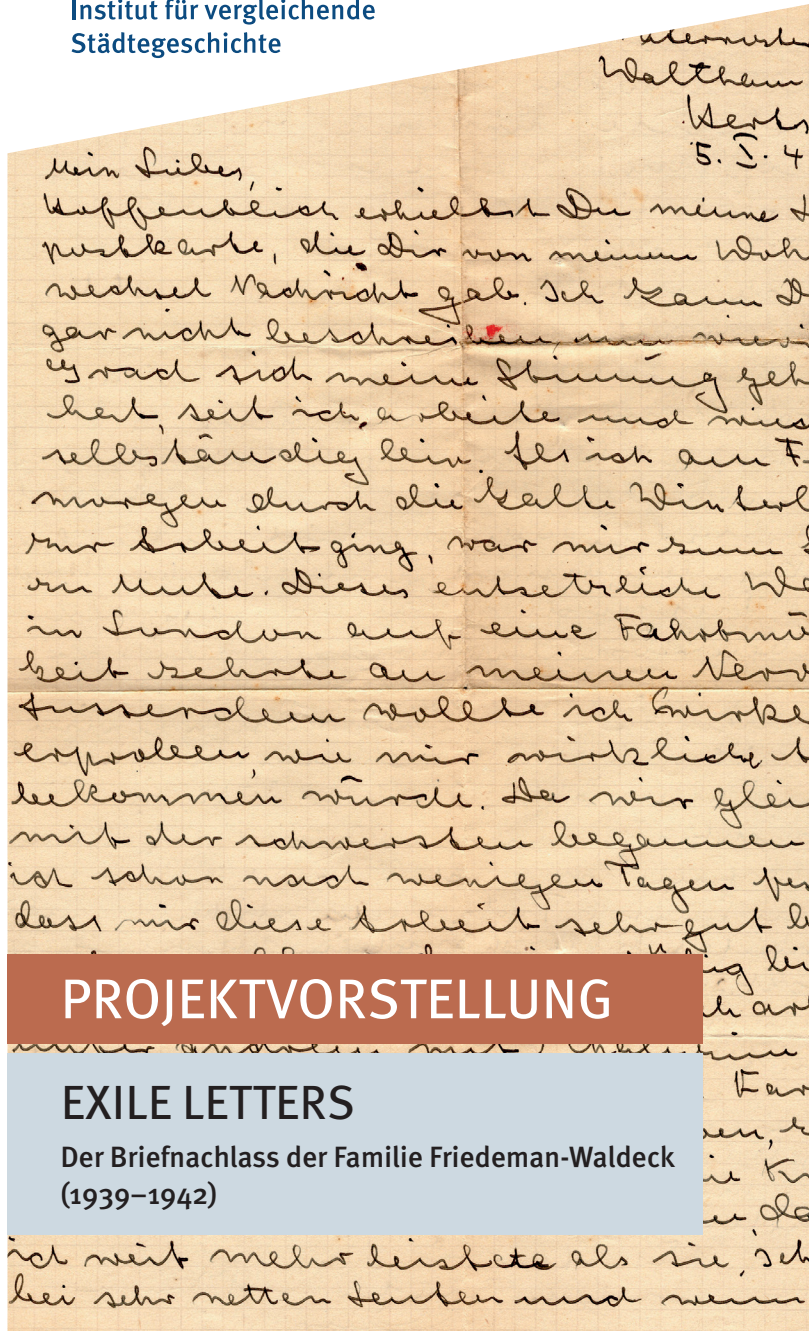 Institut für vergleichende
Städtegeschichte
Waltham
Herts
5. I. 4
Mein Liebes,
Hoffentlich erhieltst Du meine
postkarte, die Dir von meinem Woh
wechsel Nachricht gab. Ich kann D
gar nicht beschreiben, um wievi
Grad sich meine Stimmung geh
bert, seit ich arbeite und
selbständig bin. Als ich am F
morgen durch die kalte Winterl
zur Arbeit ging, war mir zum
zu Mute. Dieses entsetzliche Wa
in London auf eine Fahrtmö
keit zehrte an meinen Nerv
Ausserdem wollte ich
erproben, wie mir wirkliche A
bekommen würde. Da wir glei
mit der schwersten begannen
ich schon nach wenigen Tagen fes
dass mir diese Arbeit sehr gut b
PROJEKTVORSTELLUNG
h arb
unter anderen mit
EXILE LETTERS
Far
Der Briefnachlass der Familie Friedeman-Waldeck
(1939–1942)
ich weit mehr leistete als sie, Ich
bei sehr netten Leuten und wenn